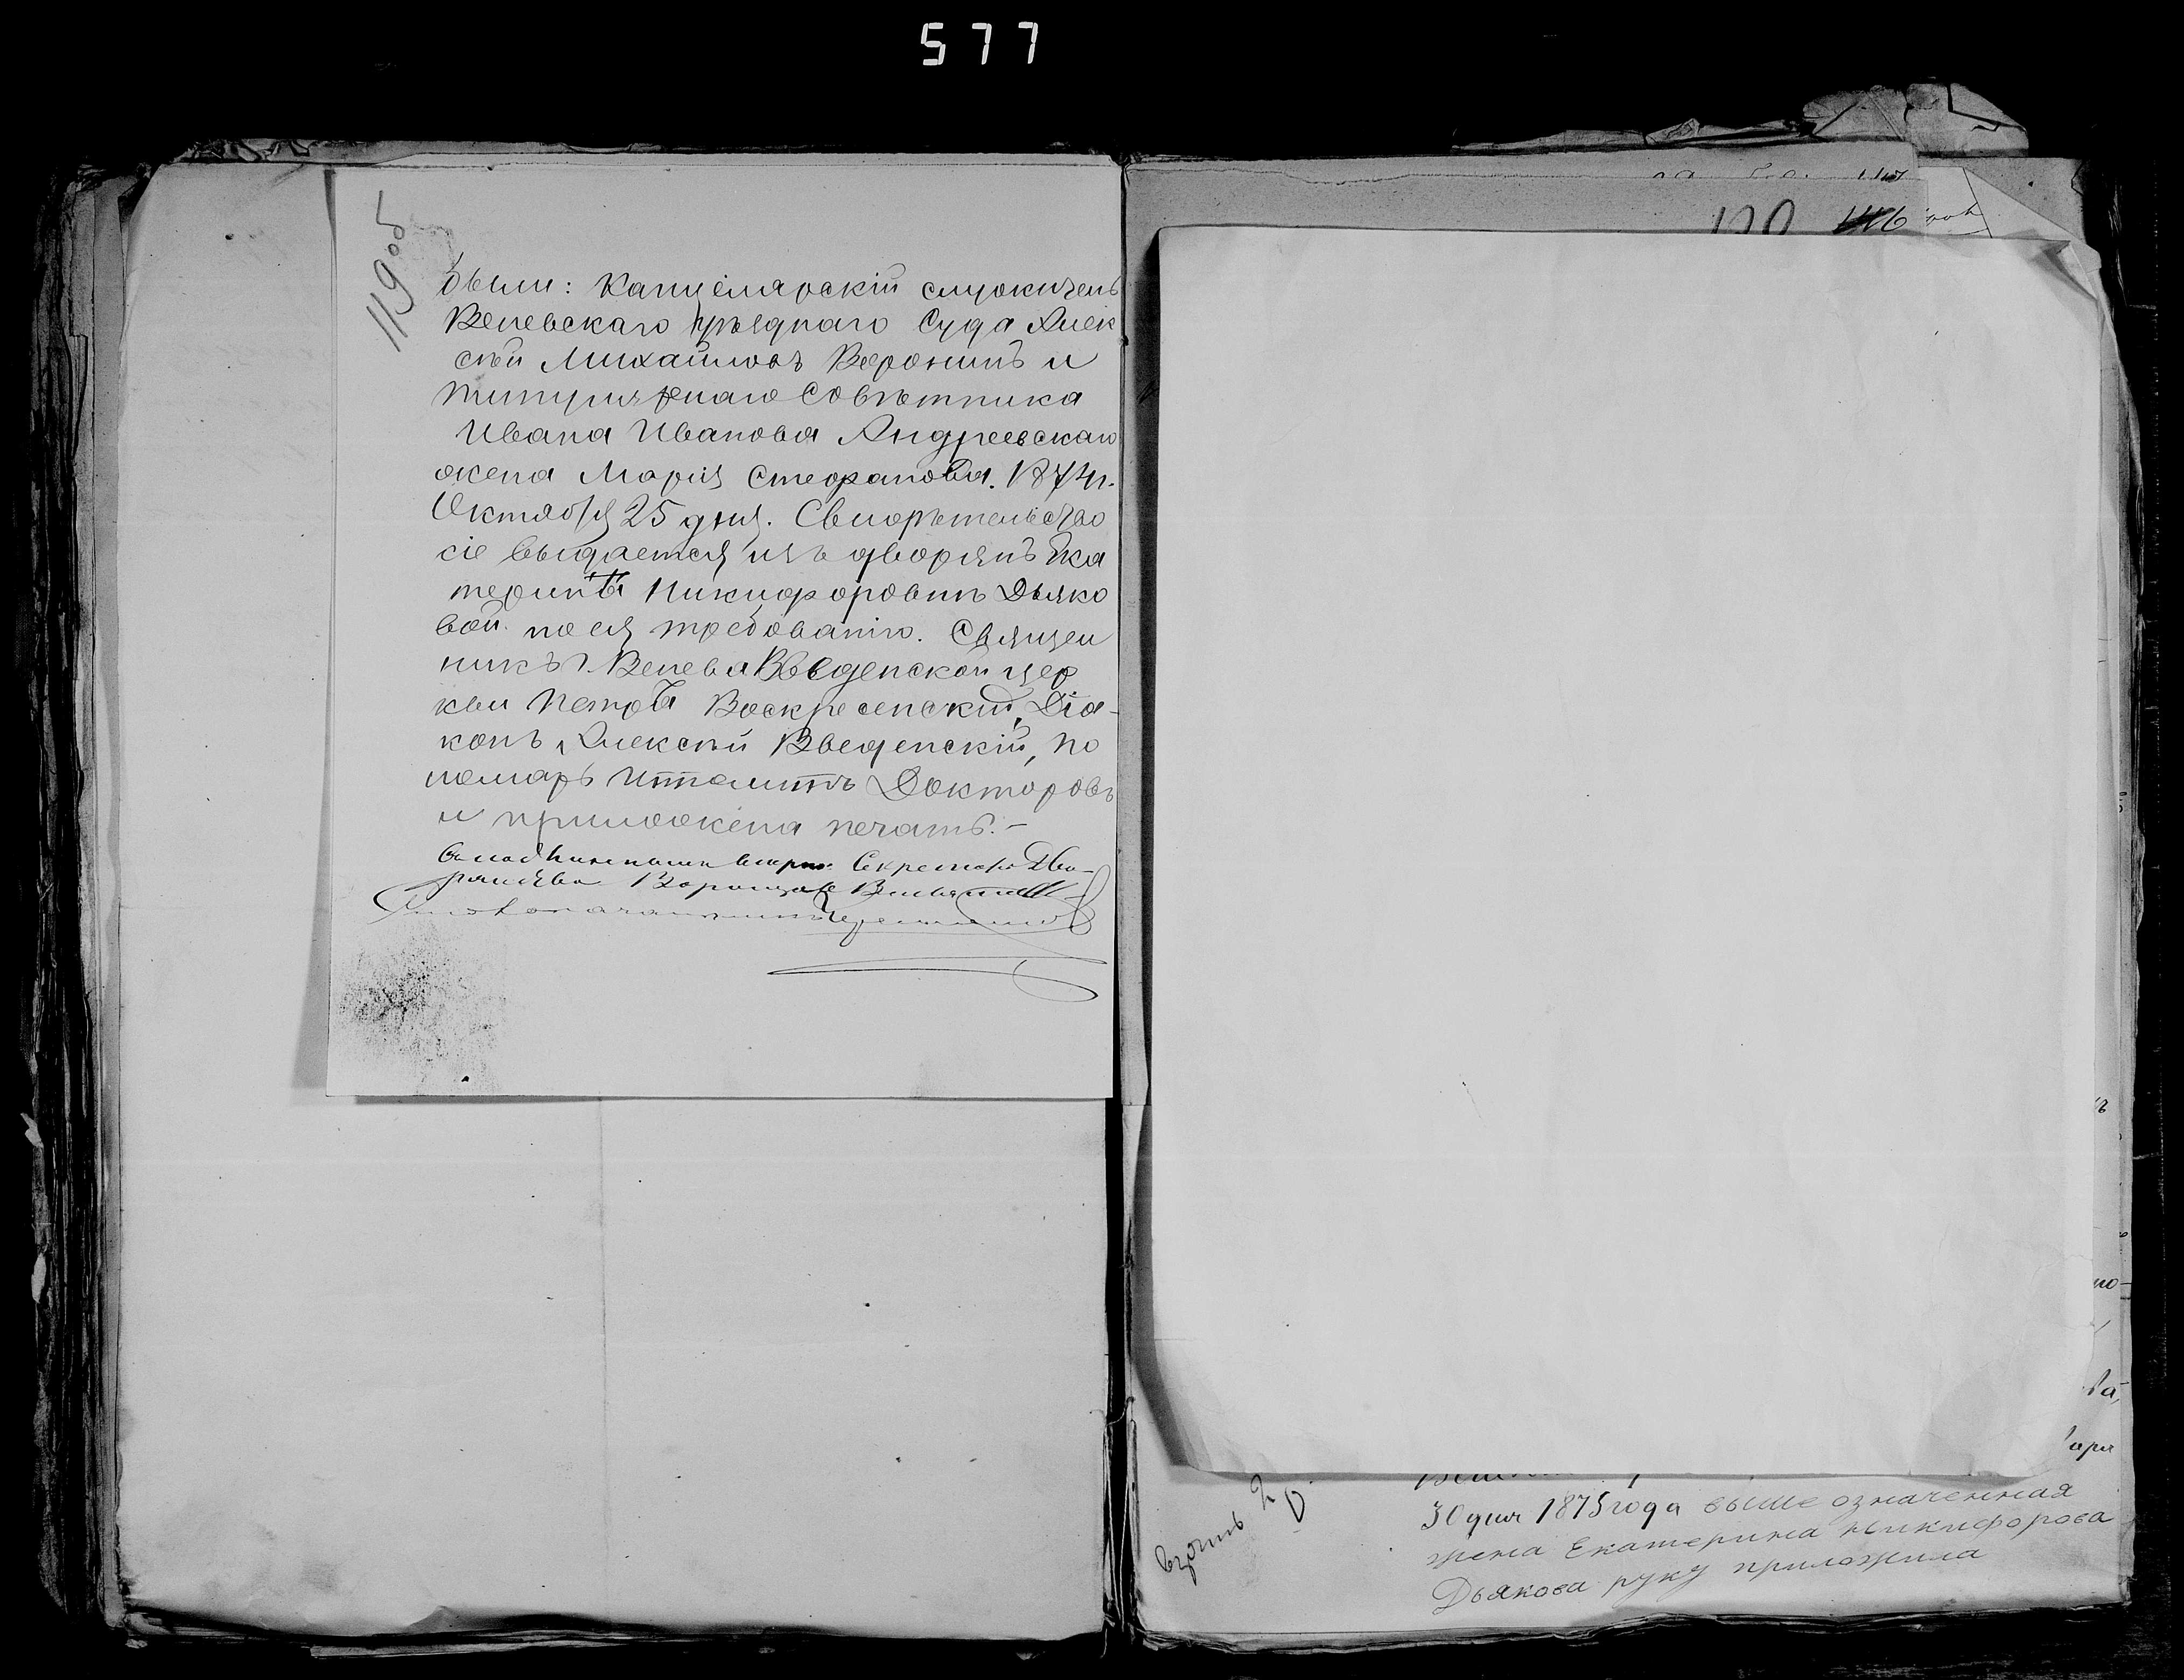 577
119 об
были: Канцелярскій служитель
Веневскаго уѣзднаго Суда Алек
сѣй Михайловъ Воронинъ и
титулярнаго Совѣтника
Ивана Иванова Андреевскаго
жена Марія Стефанова. 1874 г.
Октября 25 дня. Свидѣтельство
сіе выдается изъ дворянъ Ека
теринѣ Никифоровнѣ Дьяко
вой по ея требованію. Священ
никъ г. Венева Введенской цер
кви Петръ Воскресенскій, Діа-
конъ Алексѣй Введенскій, по
номарь Докторовъ
и приложена печать.-
Секретарь Дво-
рянства
120 116
30 дня 1875 года выше означенная
жена Екатерина Никифорова
Дьякова руку приложила